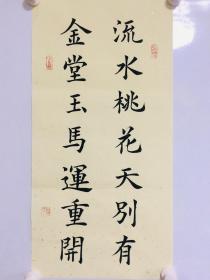 流水桃花天別有
金堂玉馬運重開